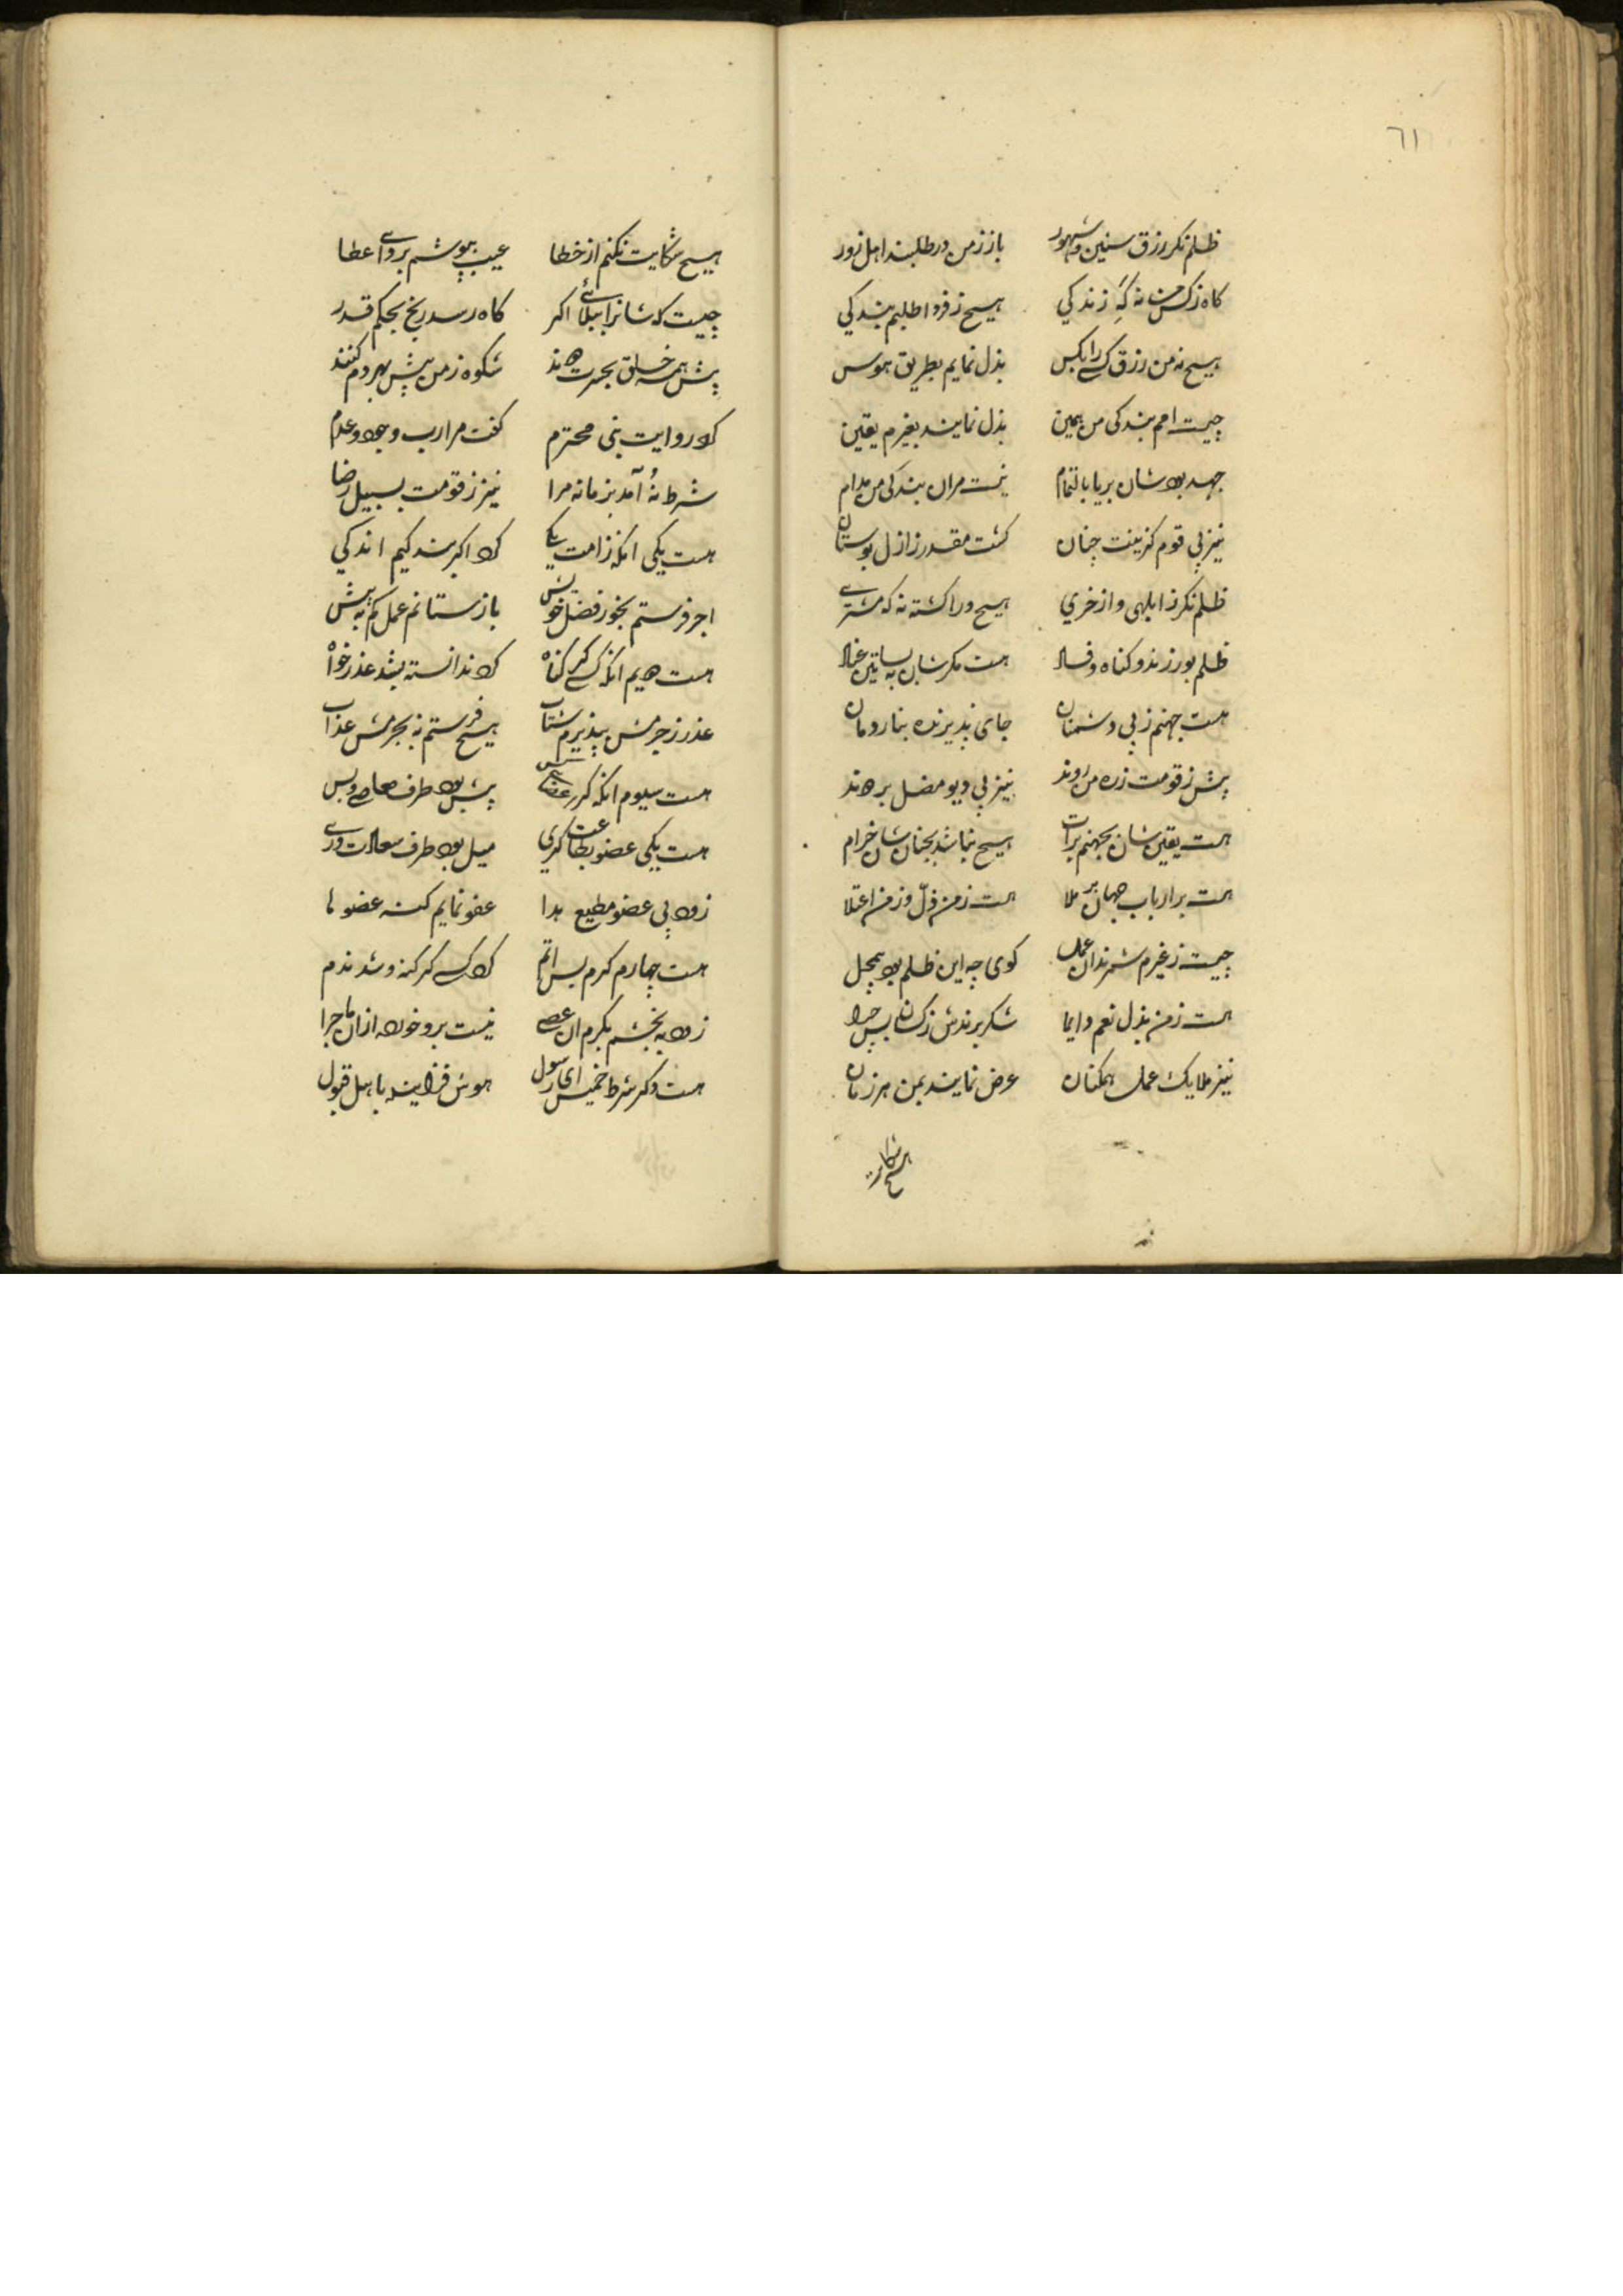 ٦١
ظلم نکر رزق سنین و شهور باز ز من در طلبند اهل زور
کاه زکس من نه که زندکی هیچ ز فردا طلبم بندکی
هیچ نه من رزق کسی را بکس بذل نمایم بطریق هوس
چیست امم بندکی من بهمین بذل نمایند بغیرم یقین
جهد بود شان بریا بالتمام نیست مران بندکی من مدام
نیز پی قوم کزینت جنان کشت مقدر ز ازل بوستان
ظلم نکر ز ابلهی و از خری هیچ ورا کشته نه که مشتری
ظلم بورزند و کناه و فساد هست مکر شان به بساتین
هست جهنم ز پی دشمنان جای پذیرنده بنار دمان
پیش ز قومت زره من روند نیز پی دیو مضل بر دهند
هست یقین شان بجهنم برات هیچ نباشد بجنان شان خرام
هست بر ارباب جهان بر ملا هست ز من ذل و ز من اعتلا
چیست ز غیرم شمرند آن عمل کوی چه این ظلم بود بمحل
هست ز من بذل نعم دایما شکر برندش ز کسان بس چرا
نیز ملایک عمل همکنان عرض نمایند بمن هر زمان
هیچ شکایت
هیچ شکایت نکنم از خطا عیب بپوشم بردای عطا
چیست که شانرا ببلائی اکر کاه رسد رنج بحکم قدر
پیش همه خلق بجرت دهند شکوه ز من پیش بهر دم کنند
کرد روایت نبی محترم کفت مرا رب وجود و عدم
شرط نه آمد بزمانه مرا نیز ز قومت بسبیل رضا
هست یکی انکه ز امت یکی کرد اکر بندکیم اندکی
اجر فرستم بخور فضل خویش باز ستانم عمل کم نه بیش
هست دهیم انکه کسی کر کناه کرد ندانسته بشد عذر خواه
عذر ز جرمش بپذیرم شتاب هیچ فرستم نه بجرمش عذاب
هست سیوم انکه کر پیش بود طرف معاصی و بس
هست یکی عضو بطاعت کری میل بود طرف سعادت وری
زود پی عضو مطیع هدا عفو نمایم کنه عضوها
هست چهارم کرم بس اتم کرد کسی کر کنه و شد ندم
زود به بخشم بکرم آن عصی نیست برو خورده از آن ماجرا
هست دکر شرط خمیس ای رسول هوش فزاینده باهل قبول